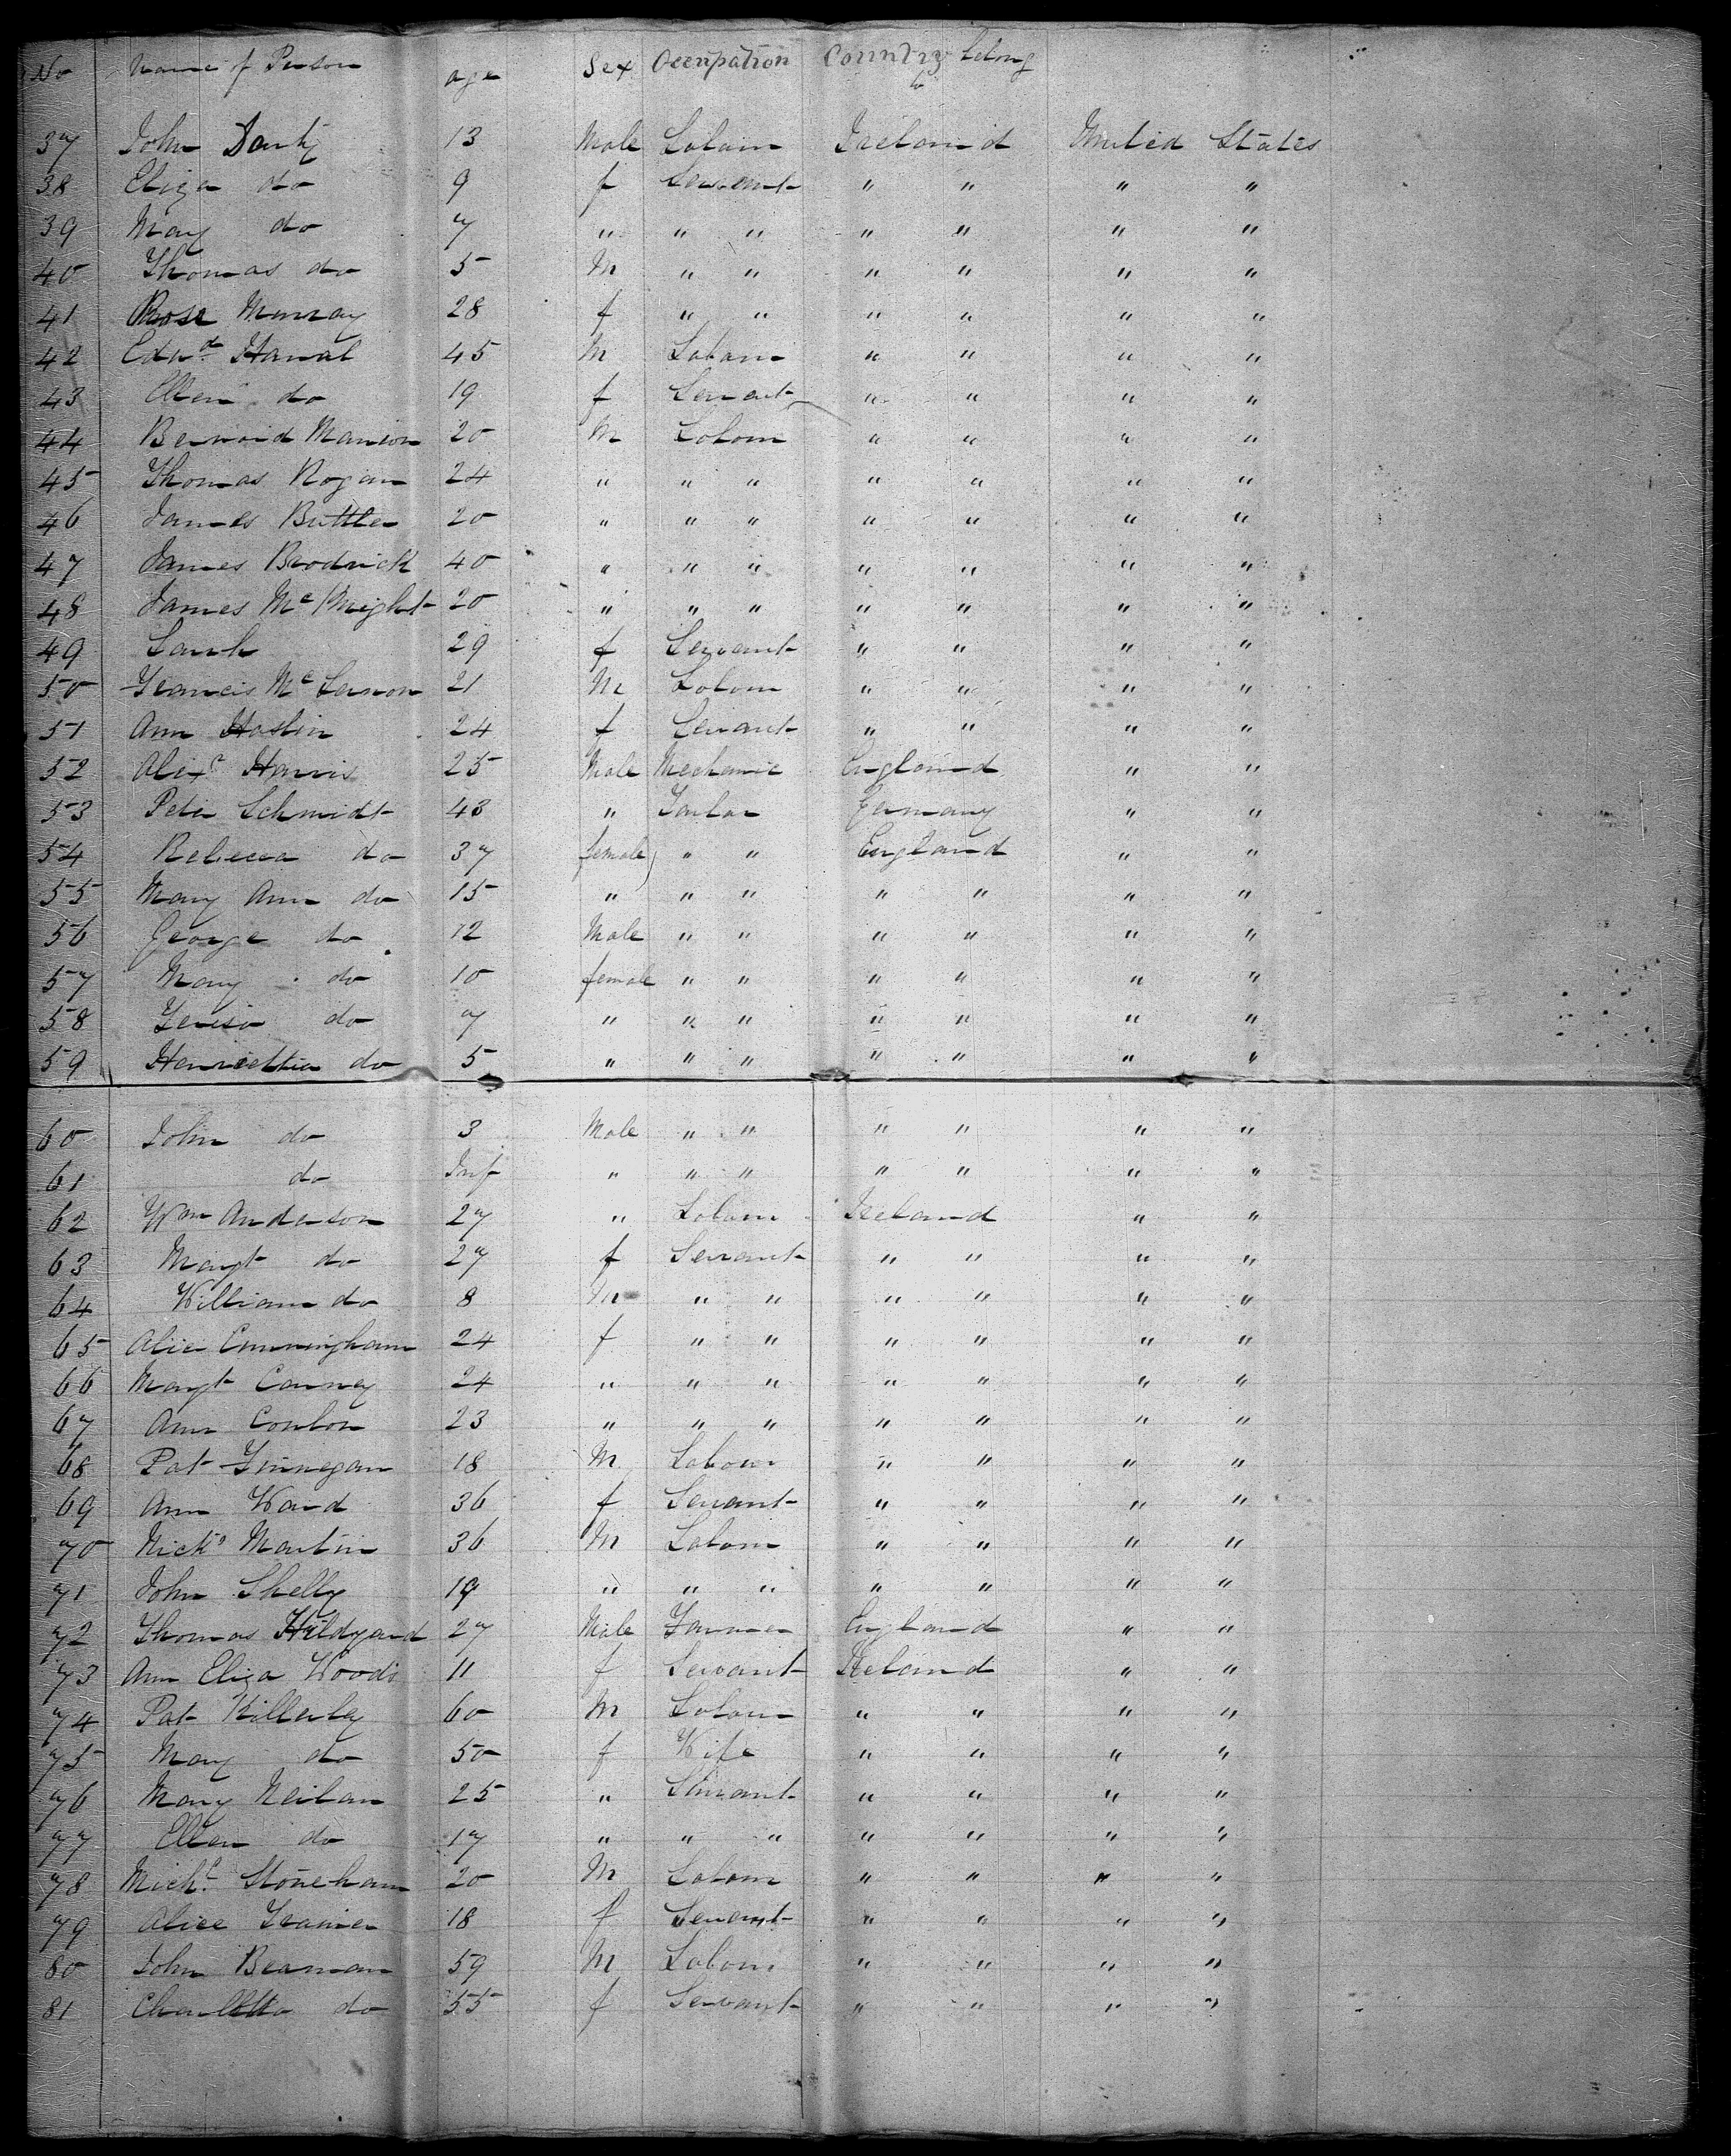 No Name of Person age Sex Occupation Country belong to
37 John 13 Male Labour Ireland United States
38 Eliza do 9 f Servant " " " "
39 Mary do 7 " " " " " " "
40 Thomas do 5 M " " " " " "
41 Rose Murray 28 f " " " " " "
42 Edwd 45 M Labour " " " "
43 Ellen do 19 f Servant " " " "
44 Bernard Manion 20 M Labour " " " "
45 Thomas Rogan 24 " " " " " " "
46 James Buttler 20 " " " " " " "
47 James Brodrick 40 " " " " " " "
48 James Mc Knight 20 " " " " " " "
49 Sarah 29 f Servant " " " "
50 Francis Mc 21 M Labour " " " "
51 Ann 24 f Servant " " " "
52 Alixr Harris 25 Male Mechanic England " "
53 Peter Schmidt 43 " Germany " "
54 Rebecca do 37 female " " England " "
55 Mary Ann do 15 " " " " " " "
56 George do 12 Male " " " " " "
57 Mary do 10 female " " " " " "
58 do 7 " " " " " " "
59 Henriettia do 5 " " " " " " "
60 John do 3 Male " " " " " "
61 do Inf " " " " " " "
62 Wm Anderson 27 " Labour Ireland " "
63 Margt do 27 f Servant " " " "
64 William do 8 M " " " " " "
65 Alice Cunningham 24 f " " " " " "
66 Margt Carney 24 " " " " " " "
67 Ann Conlon 23 " " " " " " "
68 Pat Finnegan 18 M Labour " " " "
69 Ann Ward 36 f Servant " " " "
70 Nicks Martin 36 M Labour " " " "
71 John Shelly 19 " " " " " " "
72 Thomas Hildyard 27 Male Farmer England " "
73 Ann Eliza Woods 11 f Servant Ireland " "
74 Pat Killerley 60 M Labour " " " "
75 Mary do 50 f Wife " " " "
76 Mary Neilan 25 " Servant " " " "
77 Ellen do 17 " " " " " " "
78 Michl Stoneham 20 M Labour " " " "
79 Alice 18 f Servant " " " "
80 John Beaman 59 M Labour " " " "
81 Charlotta do 55 f Servant " " " "